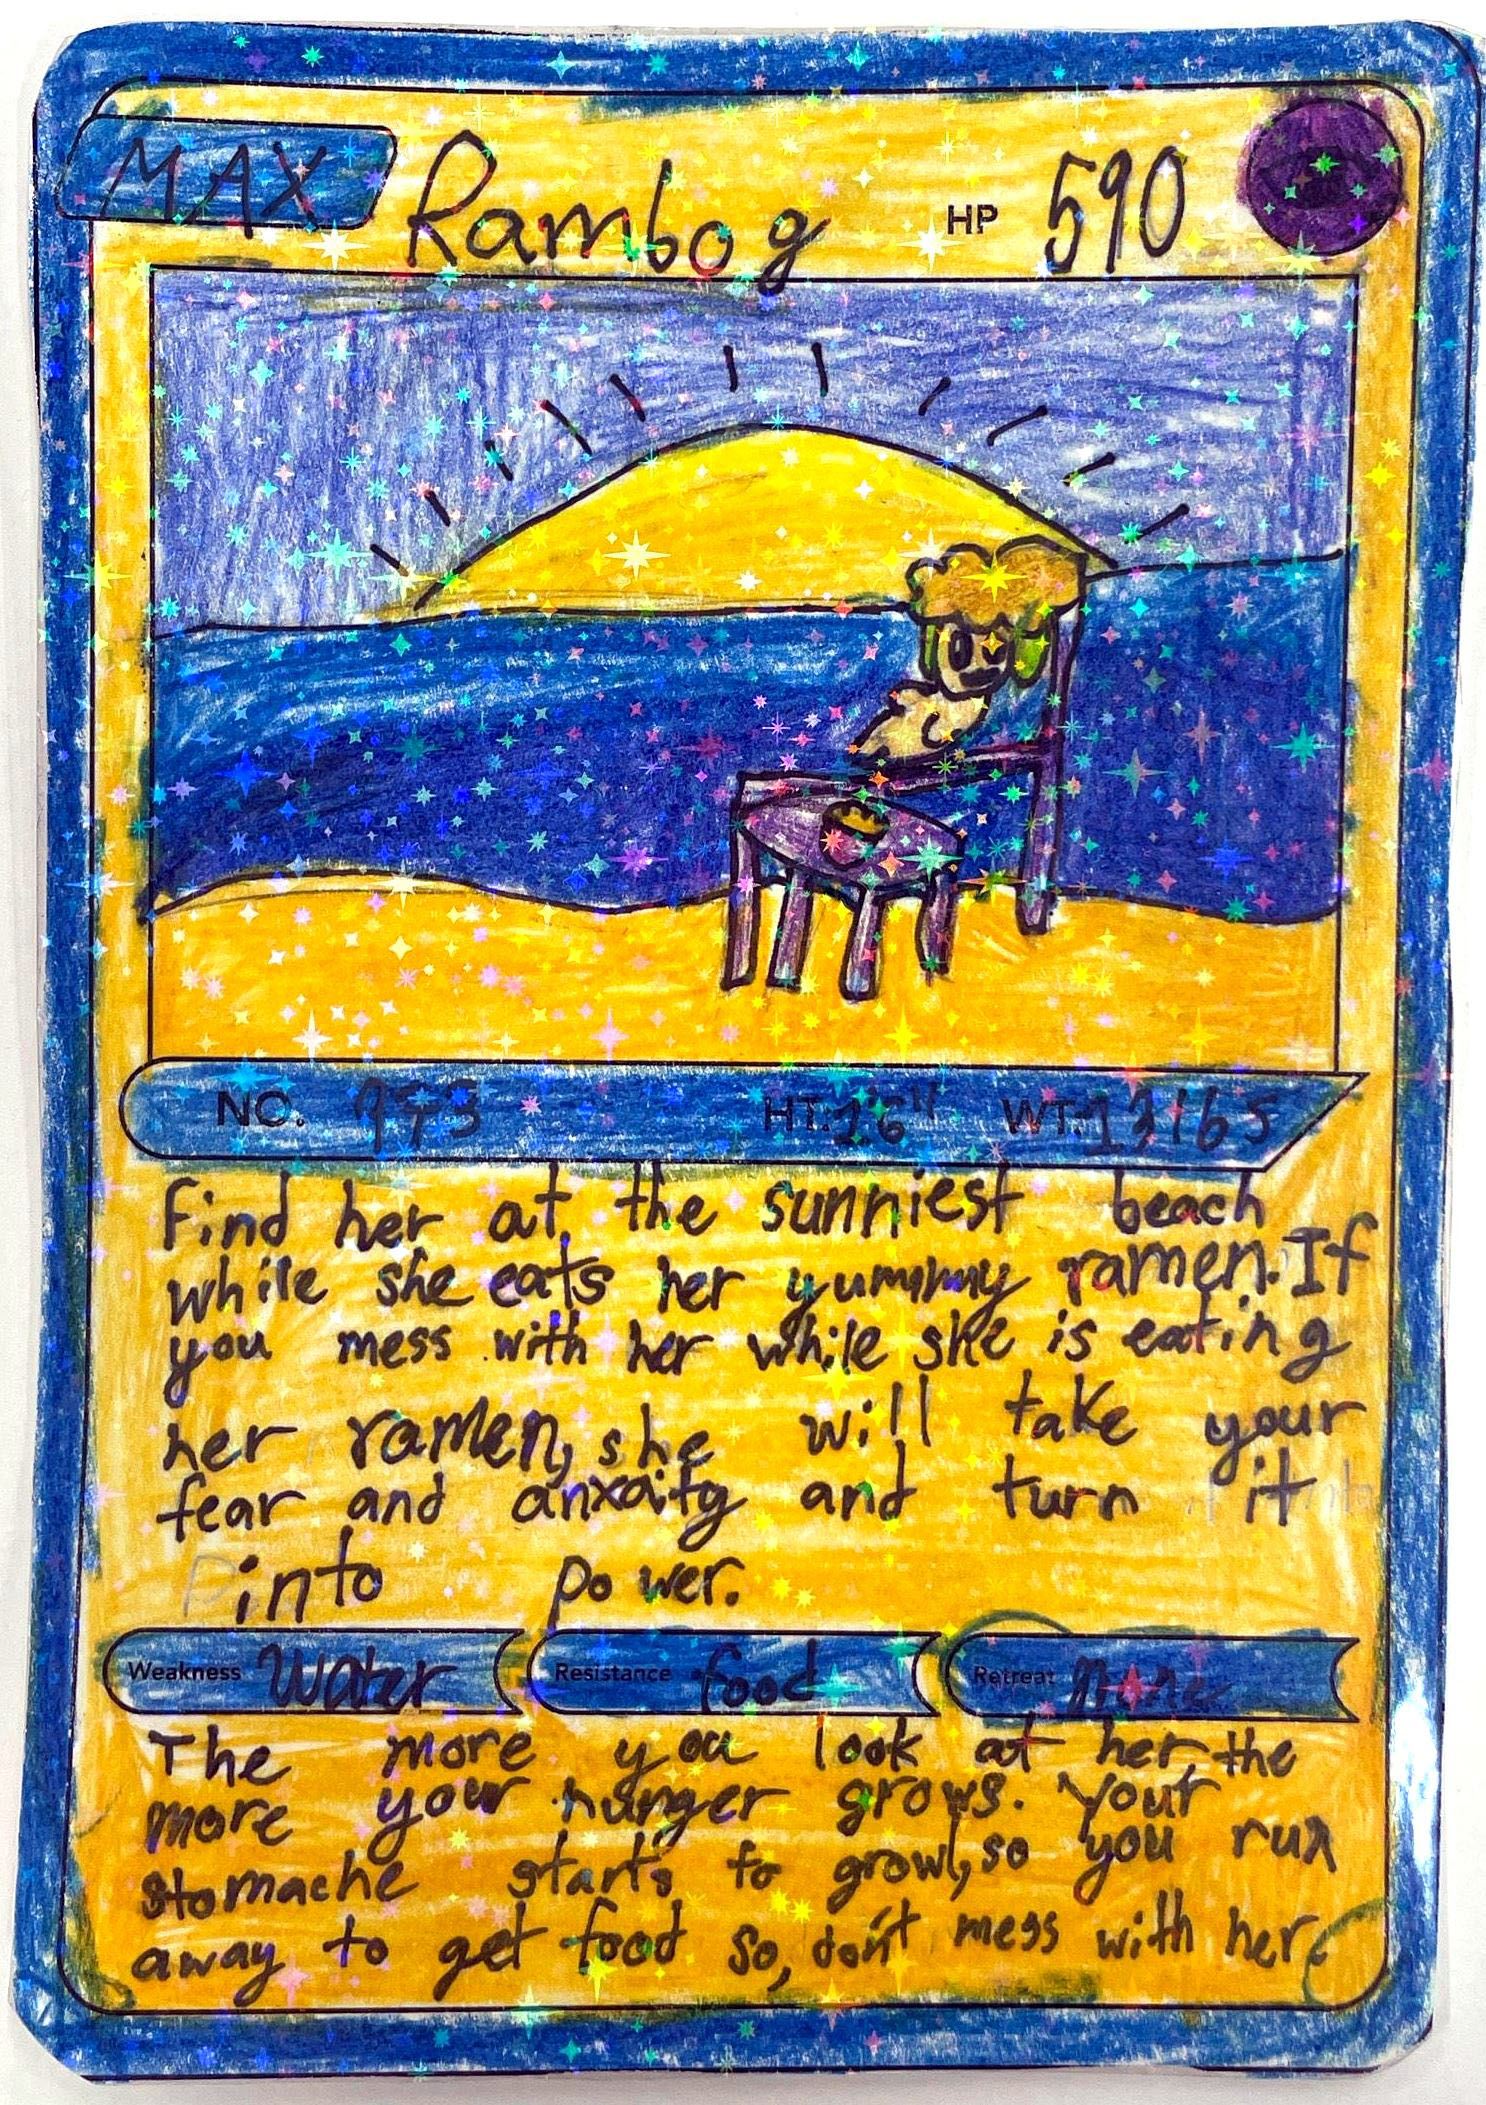 MAX Rambog HP 590
NO. 993 HT. 26" WT. 13 lbs
Find her at the sunniest beach
while she eats her yummy ramen. If
you mess with her while she is eating
her ramen, she will take your
fear and anxaity and turn it
into power.
Weakness Water Resistance food Retreat None
The more you look at her the
more your hunger grows. Your
stomache starts to growl, so you run
away to get food so, don't mess with her.